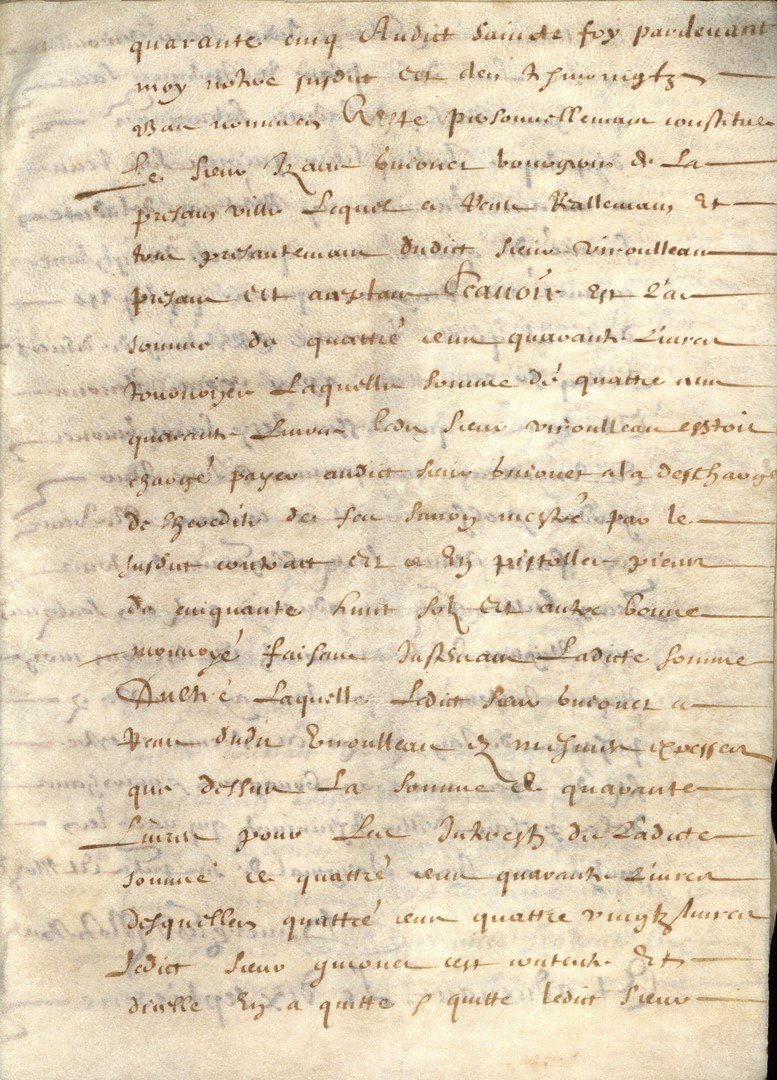 quarante cinq Audict saincte foy pardevant
moy not̃re susdict Est des thesmoingtz
bas nommes Aeste personnellemant constitué
Le sieur bourgeois de La
presant ville Lequel a Reallemant Et
presantemant dudict sieur viroulleau
presant Est aceptant Scavoir Est La
somme de quattre cent quarante Livres
tournoizes Laquelle somme de quattre cent
quarante Livres ledit sieur viroulleau estoit
chargé payer audict sieur a la descharge
de de feu par le
susdict contract Est ce En pistolles pieces
de cinquante huict solz Est autre bonne
monnoyé faisant Justemant Ladicte somme
Dultré Laquelle Ledict sieur a
Receu dudit viroulleau Ez mesmes expesses
que dessus La somme de quarante
Livres pour Les Intherestz de Ladicte
somme de quattré cent quarante Livres
desquelles quattré cent quattre vingtz livres
Ledict sieur c'est contenté Et
dicelle En a quitté & quitte ledict sieur